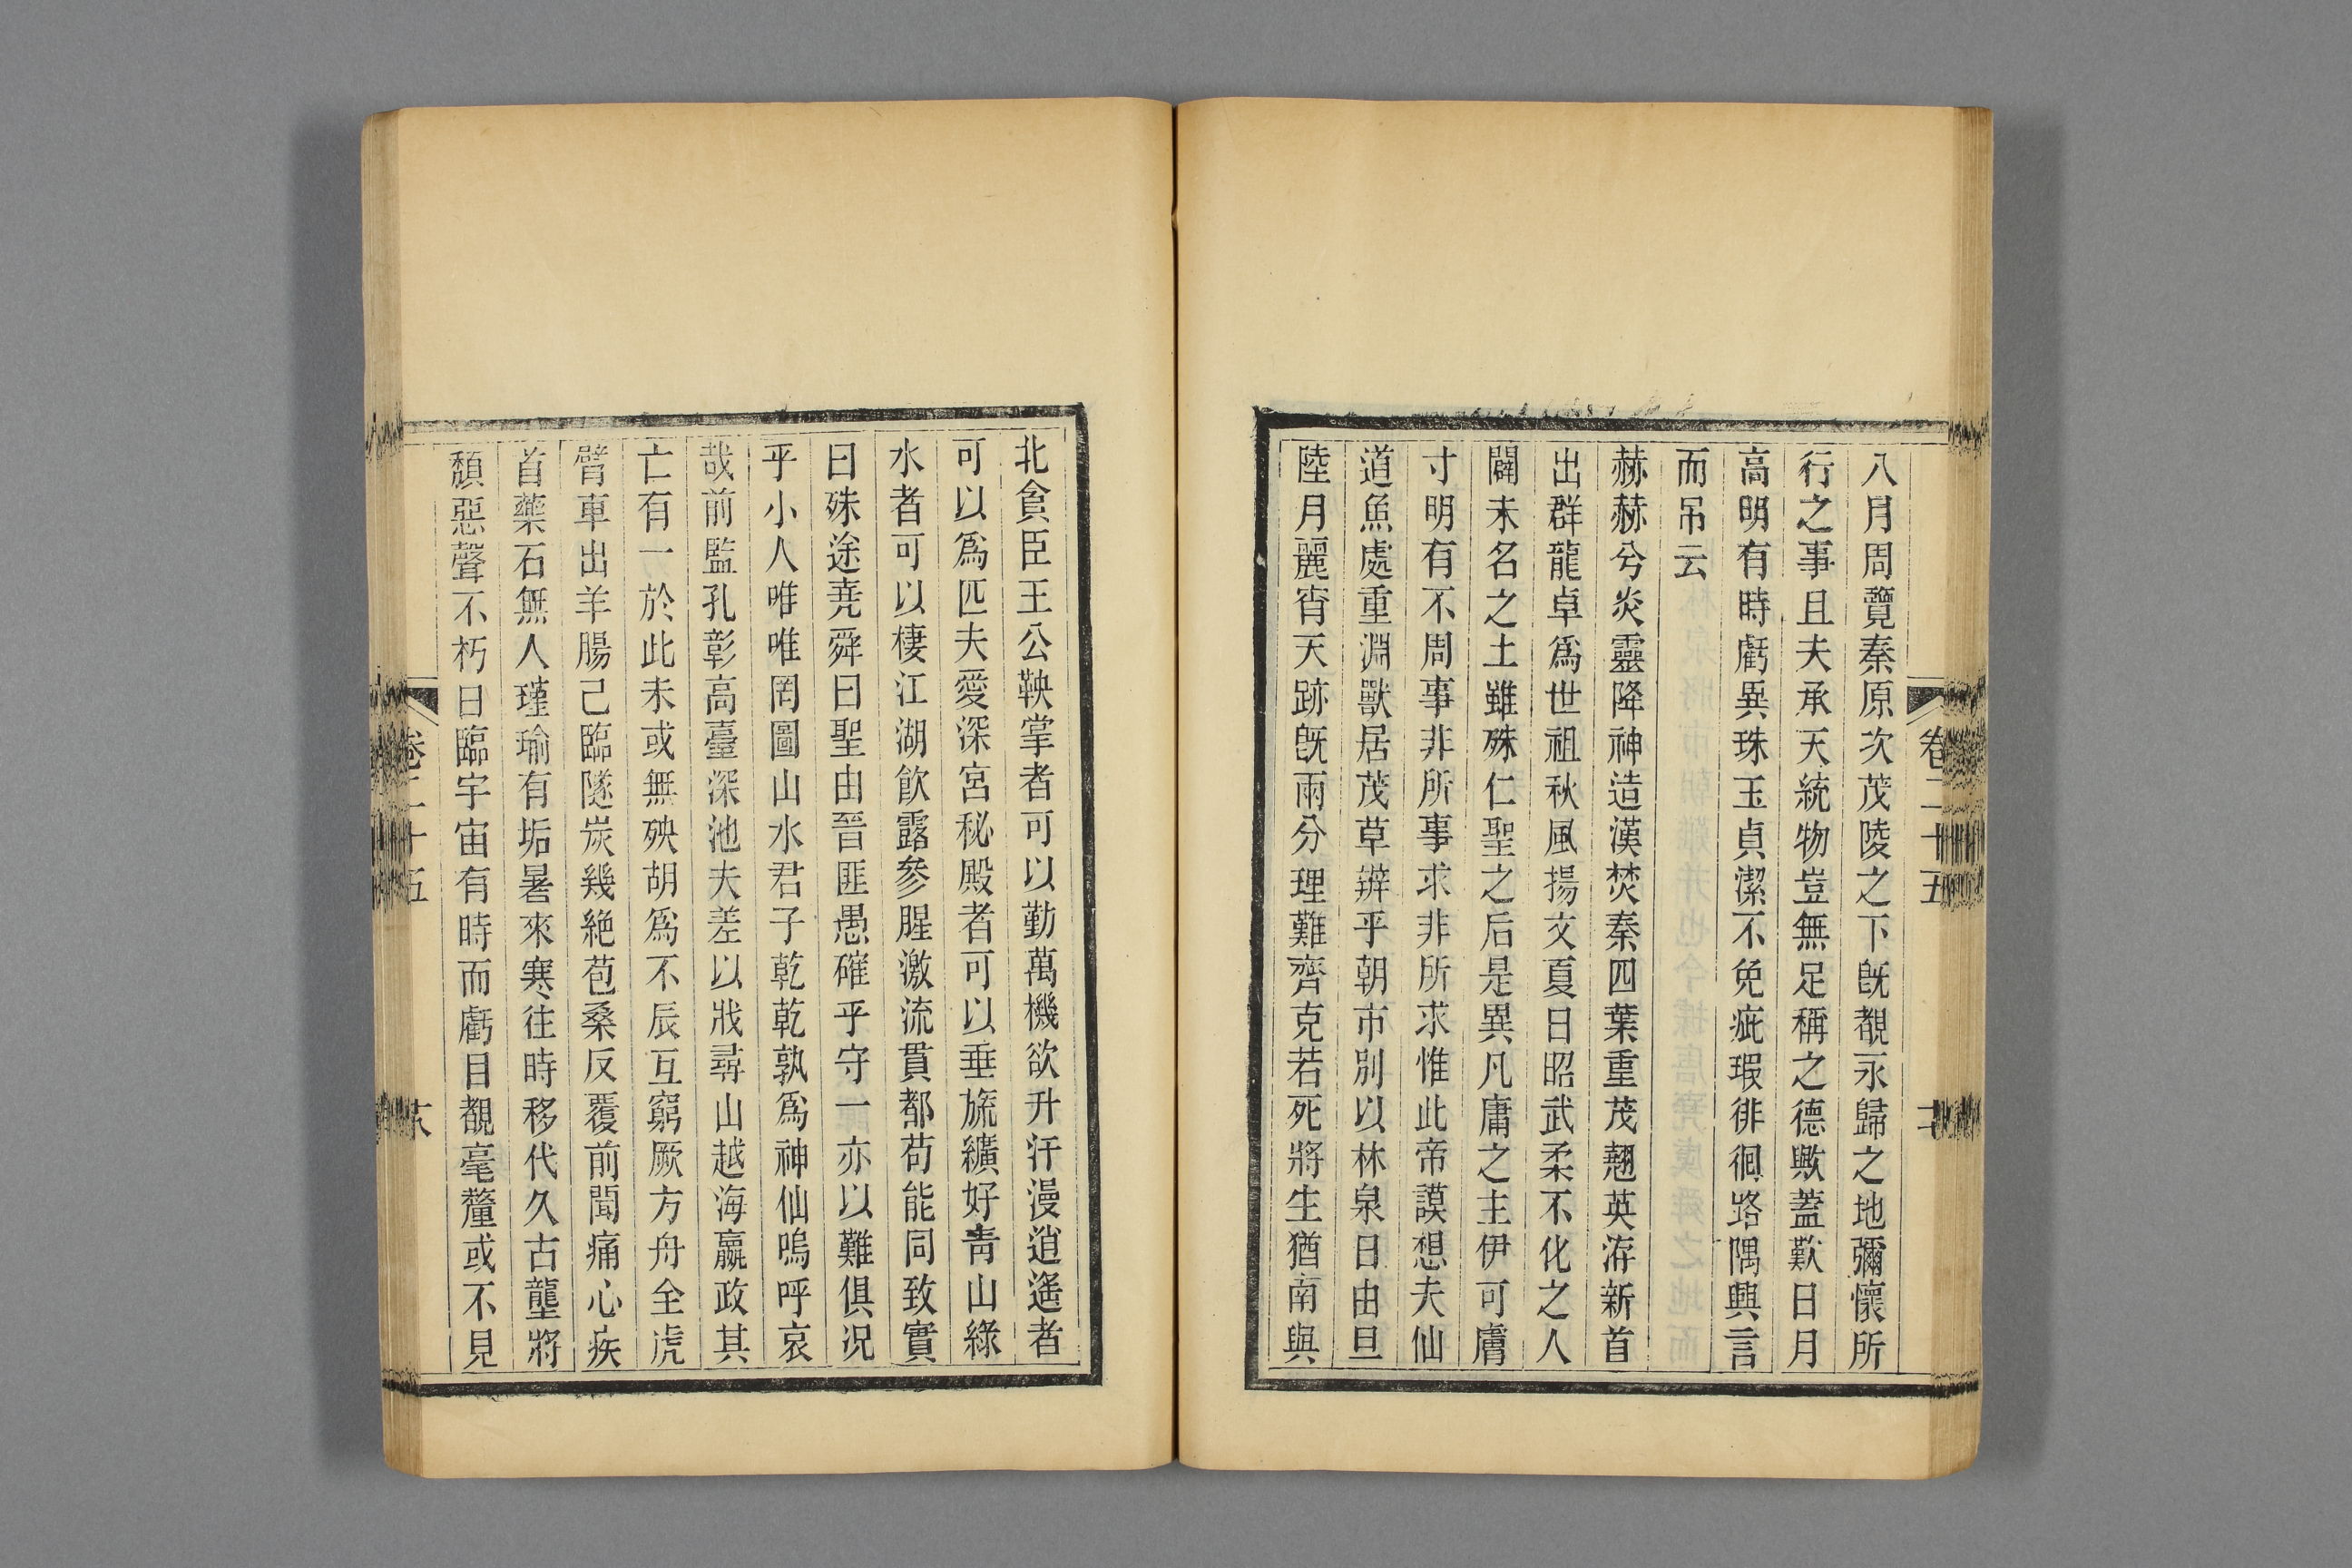 八月周覽秦原次茂陵之下旣覩永歸之地彌懷所
行之事且夫承天統物豈無足稱之德歟蓋歎日月
高明有時虧異珠玉貞潔不免疵瑕徘徊路隅興言
而吊云
赫赫兮炎靈降神造漢焚秦四葉重茂翹英洊新首
出群龍卓爲世祖秋風揚文夏日昭武柔不化之人
闢未名之土雖殊仁聖之后是異凡庸之主伊可膚
寸明有不周事非所事求非所求惟此帝謨想夫仙
道魚處重淵獸居茂草辨乎朝市別以林泉日由旦
陸月麗宵天跡旣兩分理難齊克若死將生猶南與
北貪臣王公鞅掌者可以勤萬機欲升汗漫逍遙者
可以爲匹夫愛深宮秘殿者可以垂旒纊好青山綠
水者可以棲江湖飲露參腥激流貫都苟能同致實
曰殊途堯舜曰聖由晉匪愚確乎守一亦以難俱況
乎小人唯唯罔圖山水君子乾乾孰爲神仙嗚呼哀
哉前監孔彰高臺深池夫差以戕尋山越海嬴政其
亡有一於此未或無殃胡爲不辰互窮厥方舟全虎
臂車出羊腸己臨隧炭幾絶苞桑反覆前聞痛心疾
首藥石無人瑾瑜有垢暑來寒往時移代久古壟將
頹惡聲不朽日臨宇宙有時而虧目覩毫釐或不見
卷二十五
卷二十五